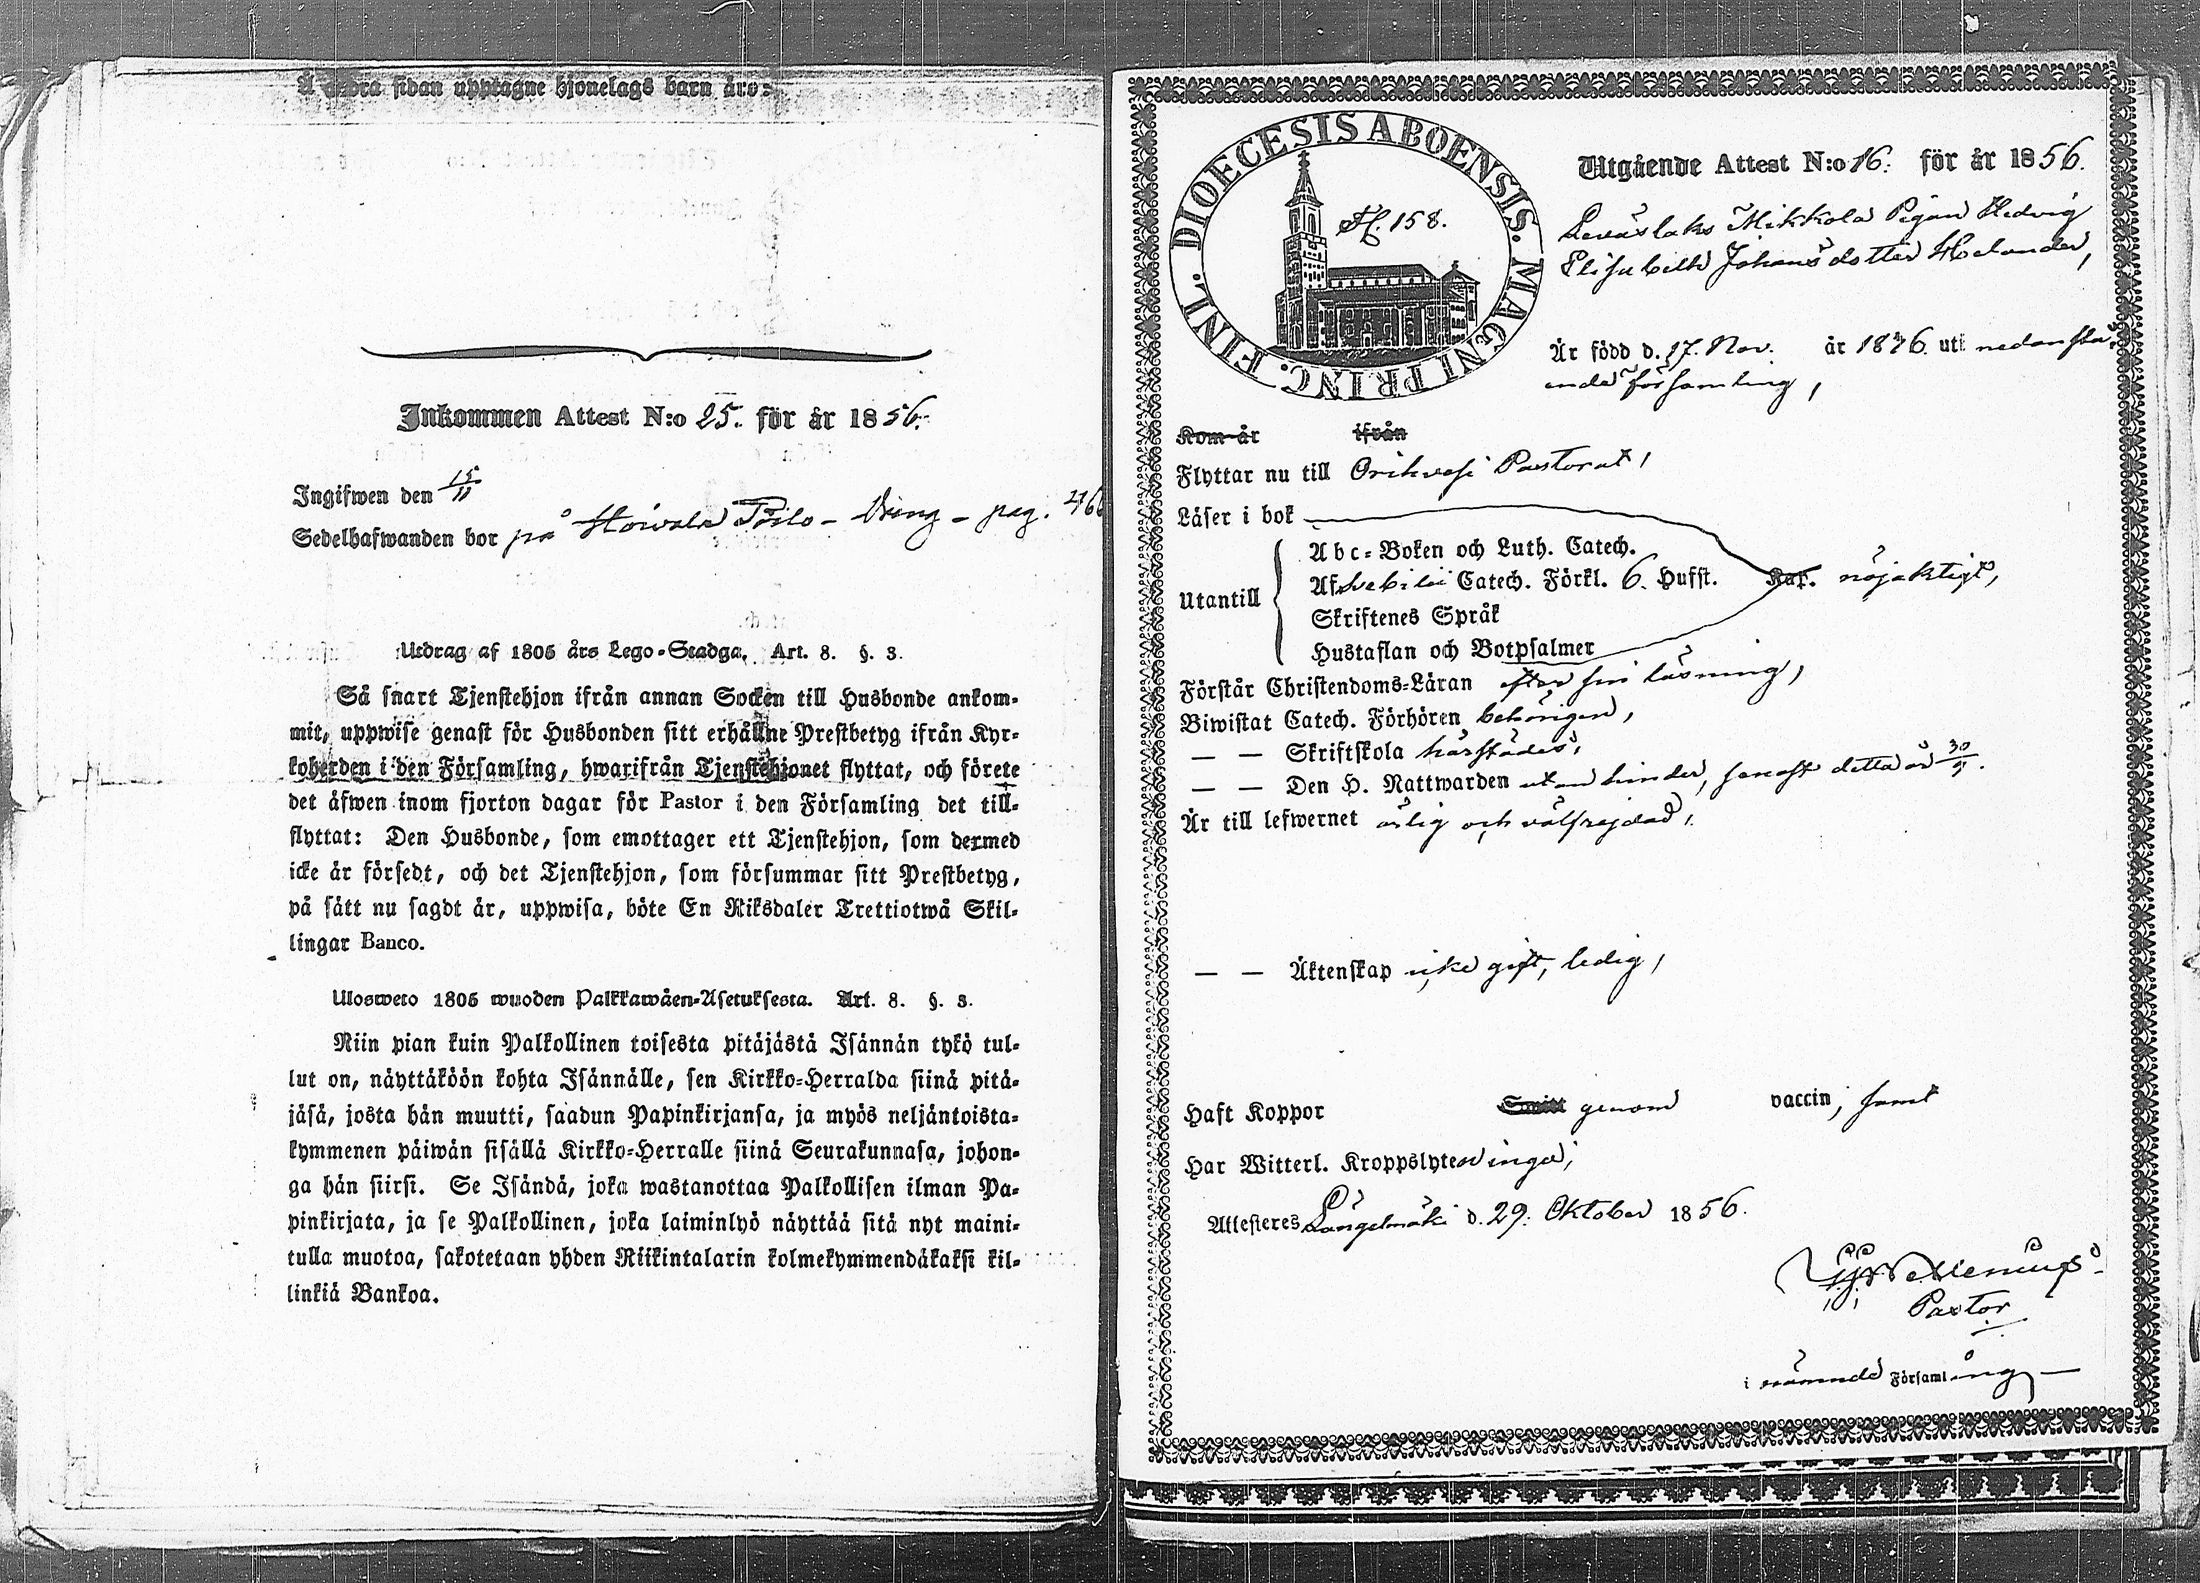 Å andra sidan upptagne hjonelags barn äro:
Inkommen Attest N:o 25. för år 1856.
Ingifwen den 15/11
Sedelhafwanden bor på Hoivala Pöilo - Dräng - pag. 466
Utdrag af 1805 års Lego-Stadga. Art. 8. §. 3.
Så snart Tjenstehjon ifrån annan Socken till Husbonde ankom-
mit, uppwise genast för Husbonden sitt erhållne Prestbetyg ifrån Kyr-
koherden i den Församling, hwarifrån Tjenstehjonet flyttat, och förete
det äfwen inom fjorton dagar för Pastor i den Församling det till-
flyttat: Den Husbonde, som emottager ett Tjenstehjon, som dermed
icke är försedt, och det Tjenstehjon, som försummar sitt Prestbetyg,
på sätt nu sagdt är, uppwisa, böte En Riksdaler Trettiotwå Skil-
lingar Banco.
Ulosweto 1805 wuoden Palkkawäen-Asetuksesta. Art. 8. §. 3.
Niin pian kuin Palkollinen toisesta pitäjästä Isännän tykö tul-
lut on, näyttäköön kohta Isännälle, sen Kirkko-Herralda siinä pitä-
jäsä, josta hän muutti, saadun Papinkirjansa, ja myös neljäntoista-
kymmenen päiwän sisällä Kirkko-Herralle siinä Seurakunnasa, johon-
ga hän siirsi. Se Isändä, joka wastanottaa Palkollisen ilman Pa-
pinkirjata, ja se Palkollinen, joka laiminlyö näyttää sitä nyt maini-
tulla muotoa, sakotetaan yhden Riikintalarin kolmekymmendäkaksi kil-
linkiä Bankoa.
DIOECESIS ABOENSIS. MAGNI PRINC. FINL.
N. 158.
Utgående Attest N:o 16. för år 1856.
Leväslaks Mikkola Pigan Hedvig
Elisabeth Johansdotter Helander,
Är född d. 17. Nov. år 1836 uti nedanstå-
ende församling,
Kom år ifrån
Flyttar nu till Orihvesi Pastorat,
Läser i bok
Utantill
Abc-Boken och Luth. Catech.
Af Svebilii Catech. Förkl. 6. Hufst. Kap. nöjaktigt,
Skriftenes Språk
Hustaflan och Botpsalmer
Förstår Christendoms-Läran efter sin läsning,
Biwistat Catech. Förhören behörigen,
— — Skriftskola härstädes,
— — Den H. Nattwarden utan hinder, senast detta år 30/9.
Är till lefwernet ärlig och välfrejdad,
— — Äktenskap icke gift, ledig,
Haft Koppor Smitt genom vaccin, samt
Har Witterl. Kroppslyten inga;
Attesteres Längelmäki d. 29. Oktober 1856.
Pastor
i nämnde Församling